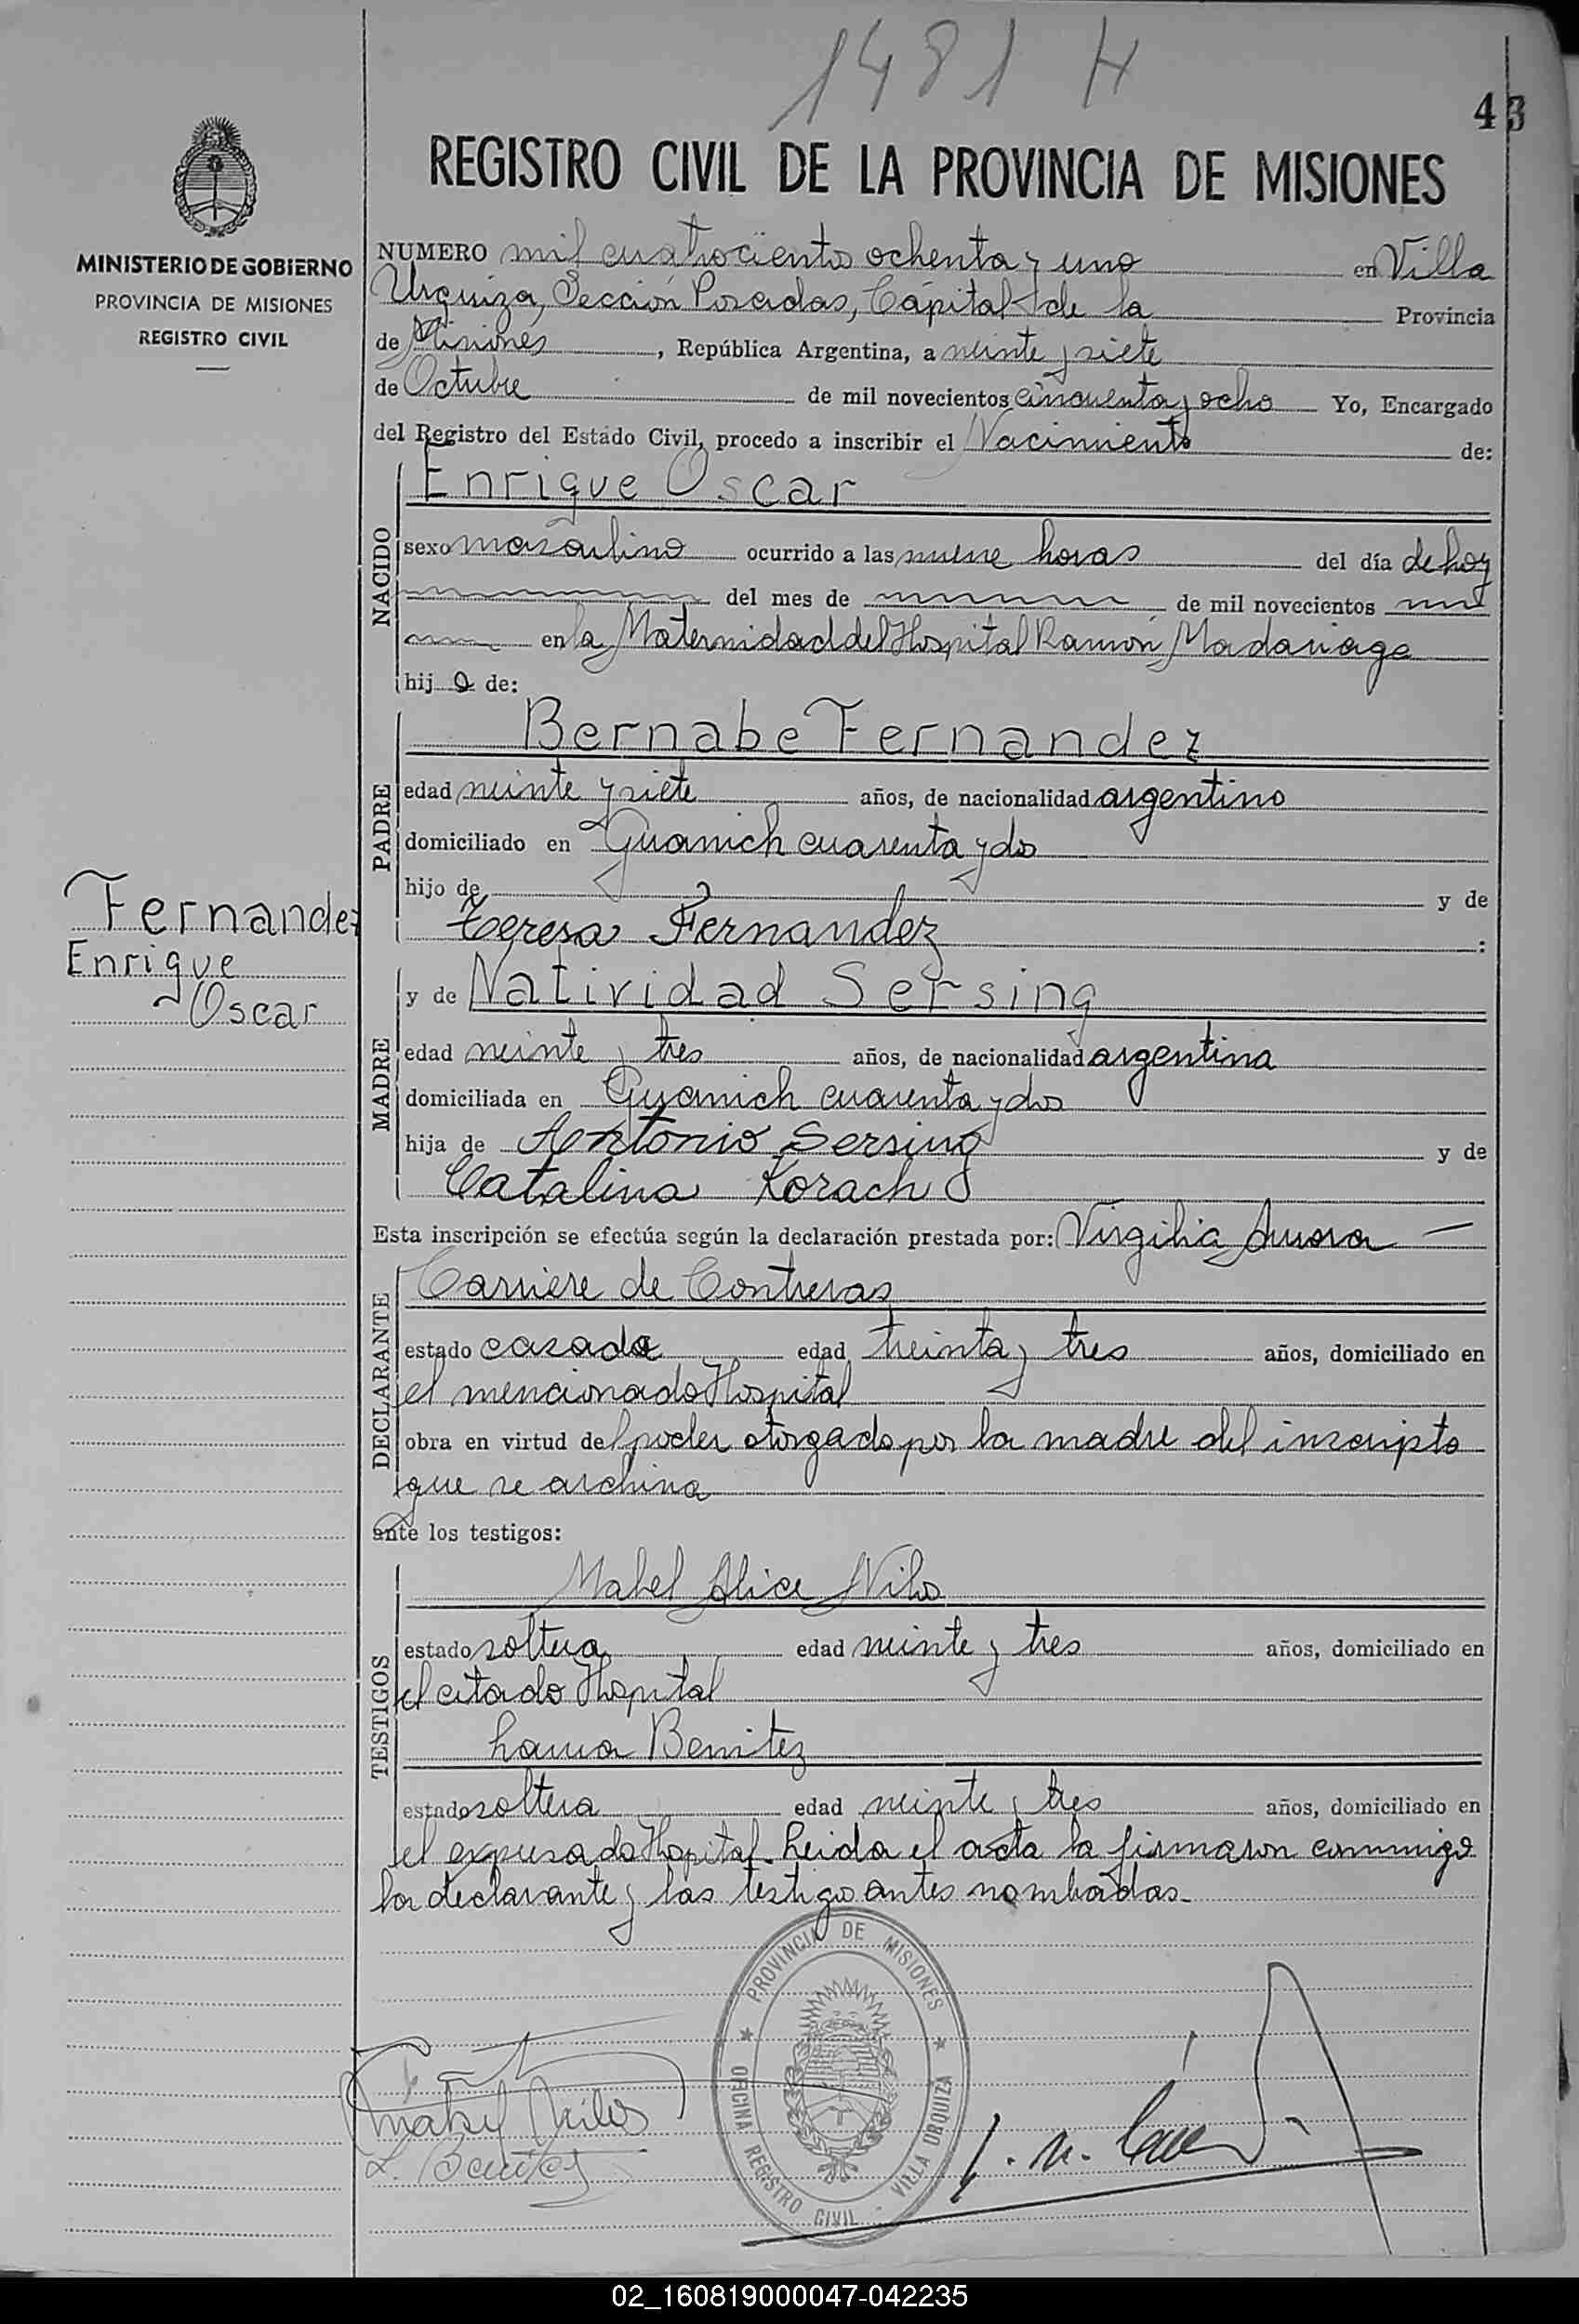 1481 H
43
REGISTRO CIVIL DE LA PROVINCIA DE MISIONES
MINISTERIO DE GOBIERNO
PROVINCIA DE MISIONES
REGISTRO CIVIL
NUMERO mil cuatrocientos ochenta y uno en Villa
Urquiza, Sección Posadas, Cápital de la Provincia
de Misiones, República Argentina, a veinte y siete
de Octubre de mil novecientos cincuenta y ocho Yo, Encargado
del Registro del Estado Civil, procedo a inscribir el Nacimiento de:
NACIDO
Enrique Oscar
sexo masculino ocurrido a las nueve horas del día de hoy
del mes de de mil novecientos
en la Maternidad del Hospital Ramón Madariaga
hijo de:
PADRE
Bernabe Fernandez
edad veinte y siete años, de nacionalidad argentino
domiciliado en cuarenta y dos
hijo de y de
Teresa Fernandez :
Fernandez
Enrique
Oscar
MADRE
y de Natividad Sersing
edad veinte y tres años, de nacionalidad argentina
domiciliada en cuarenta y dos
hija de Antonio Sersing y de
Catalina Korach
Esta inscripción se efectúa según la declaración prestada por: Virgilia
DECLARANTE
Carriere de Contreras
estado casada edad treinta y tres años, domiciliado en
el mencionado Hospital
obra en virtud del poder otorgado por la madre del inscripto
que se archiva
ante los testigos:
TESTIGOS
Mabel Alice Nilos
estado soltera edad veinte y tres años, domiciliado en
el citado Hospital
Laura Benitez
estado soltera edad veinte y tres años, domiciliado en
el expresado Hospital. Leida el acta la firmaron conmigo
la declarante y las testigo antes nombradas.
PROVINCIA DE MISIONES
OFICINA REGISTRO CIVIL - VILLA URQUIZA
Mabel Nilos
L. Benitez
02_160819000047-042235